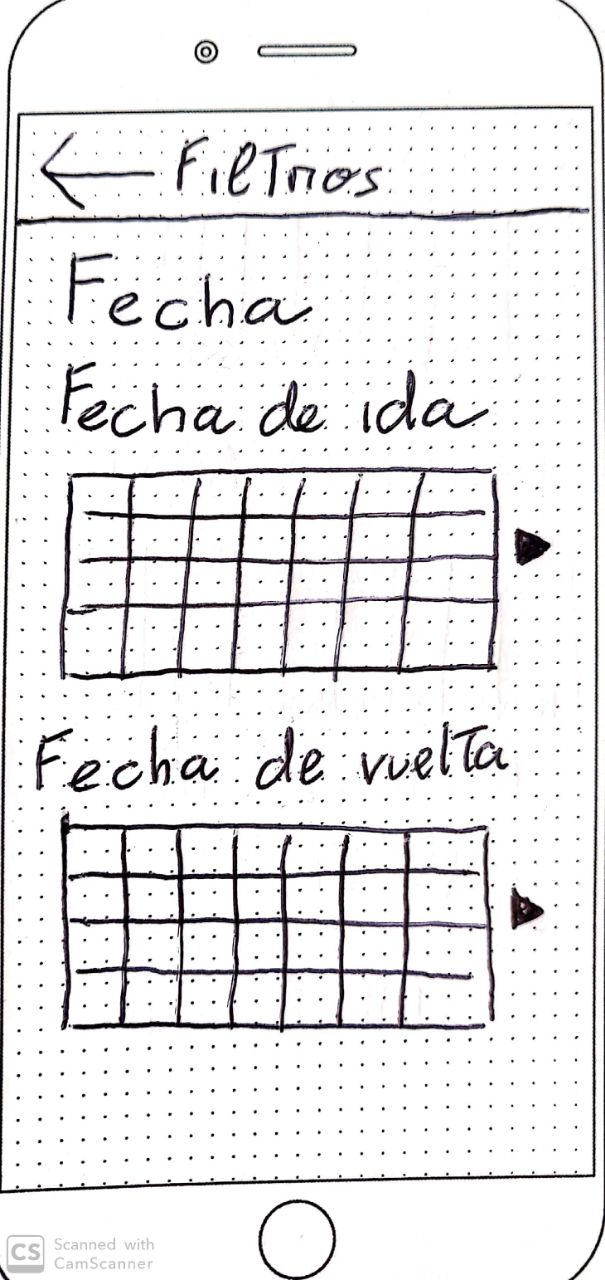 ← Filtros
Fecha
Fecha de ida
Fecha de vuelta
CS Scanned with
CamScanner